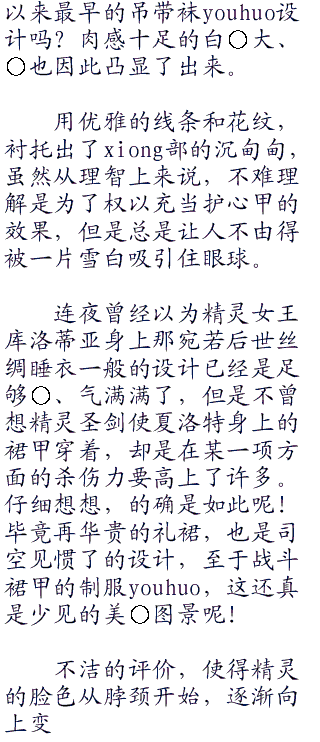 以来最早的吊带袜youhuo设
计吗？肉感十足的白〇大、
〇也因此凸显了出来。
用优雅的线条和花纹，
衬托出了xiong部的沉甸甸，
虽然从理智上来说，不难理
解是为了权以充当护心甲的
效果，但是总是让人不由得
被一片雪白吸引住眼球。
连夜曾经以为精灵女王
库洛蒂亚身上那宛若后世丝
绸睡衣一般的设计已经是足
够〇、气满满了，但是不曾
想精灵圣剑使夏洛特身上的
裙甲穿着，却是在某一项方
面的杀伤力要高上了许多。
仔细想想，的确是如此呢！
毕竟再华贵的礼裙，也是司
空见惯了的设计，至于战斗
裙甲的制服youhuo，这还真
是少见的美〇图景呢！
不洁的评价，使得精灵
的脸色从脖颈开始，逐渐向
上变